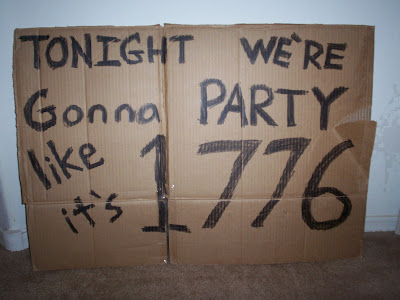 TONIGHT WE'RE
Gonna PARTY
like
it's 1776